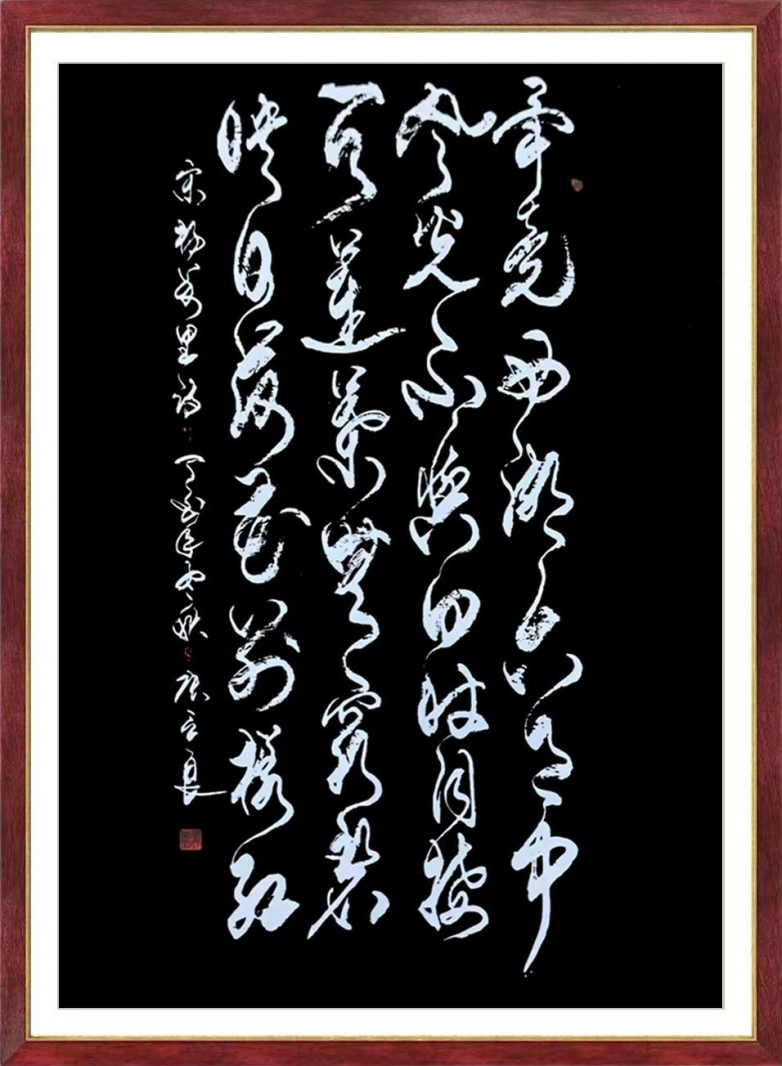 畢竟西湖六月中
風光不與四時同接
天蓮葉無窮碧
映日荷花別樣紅
宋楊萬里詩 丁酉年中秋